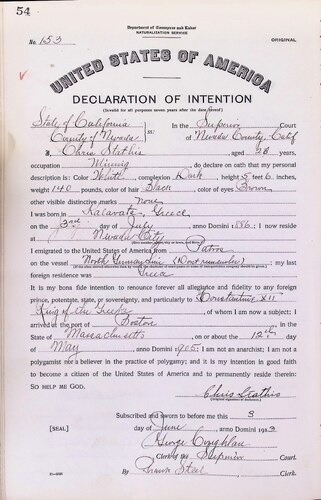 54
Department of Commerce and Labor
NATURALIZATION SERVICE
No. 153
ORIGINAL
UNITED STATES OF AMERICA
DECLARATION OF INTENTION
(Invalid for all purposes seven years after the date hereof)
State of California
In the Superior Court
County of Nevada
ss:
of Nevada County, Calif
I, Chris Stathis, aged 26 years,
occupation Mining, do declare on oath that my personal
description is: Color White, complexion Dark, height 5 feet 6 inches,
weight 140 pounds, color of hair Black, color of eyes Brown
other visible distinctive marks none
I was born in Kalavata, Greece
on the 3rd day of July, anno Domini 1886; I now reside
at Nevada City
I emigrated to the United States of America from Patras
on the vessel North German Line (Dont remember); my last
foreign residence was Greece
It is my bona fide intention to renounce forever all allegiance and fidelity to any foreign
prince, potentate, state, or sovereignty, and particularly to Constantine XII
King of the Greeks, of whom I am now a subject; I
arrived at the port of Boston, in the
State of Massachusetts, on or about the 12th day
of May, anno Domini 1905; I am not an anarchist; I am not a
polygamist nor a believer in the practice of polygamy; and it is my intention in good faith
to become a citizen of the United States of America and to permanently reside therein:
SO HELP ME GOD.
Chris Stathis
(Original signature of declarant)
Subscribed and sworn to before me this 3
[SEAL] day of June, anno Domini 1913
George Coughlan
Clerk of the Superior Court.
By Clerk.